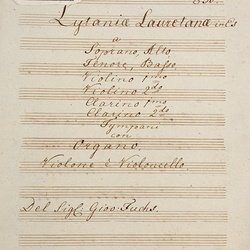 Lytaniæ Lauretanæ in Es
a
Soprano, Alto
Tenore, Basso
Violino 1mo
Violino 2do
Clarino 1mo
Clarino 2do
Tympani
con
Organo,
Violone è Violoncello.
Del Sigl: Giov: Fuchs.